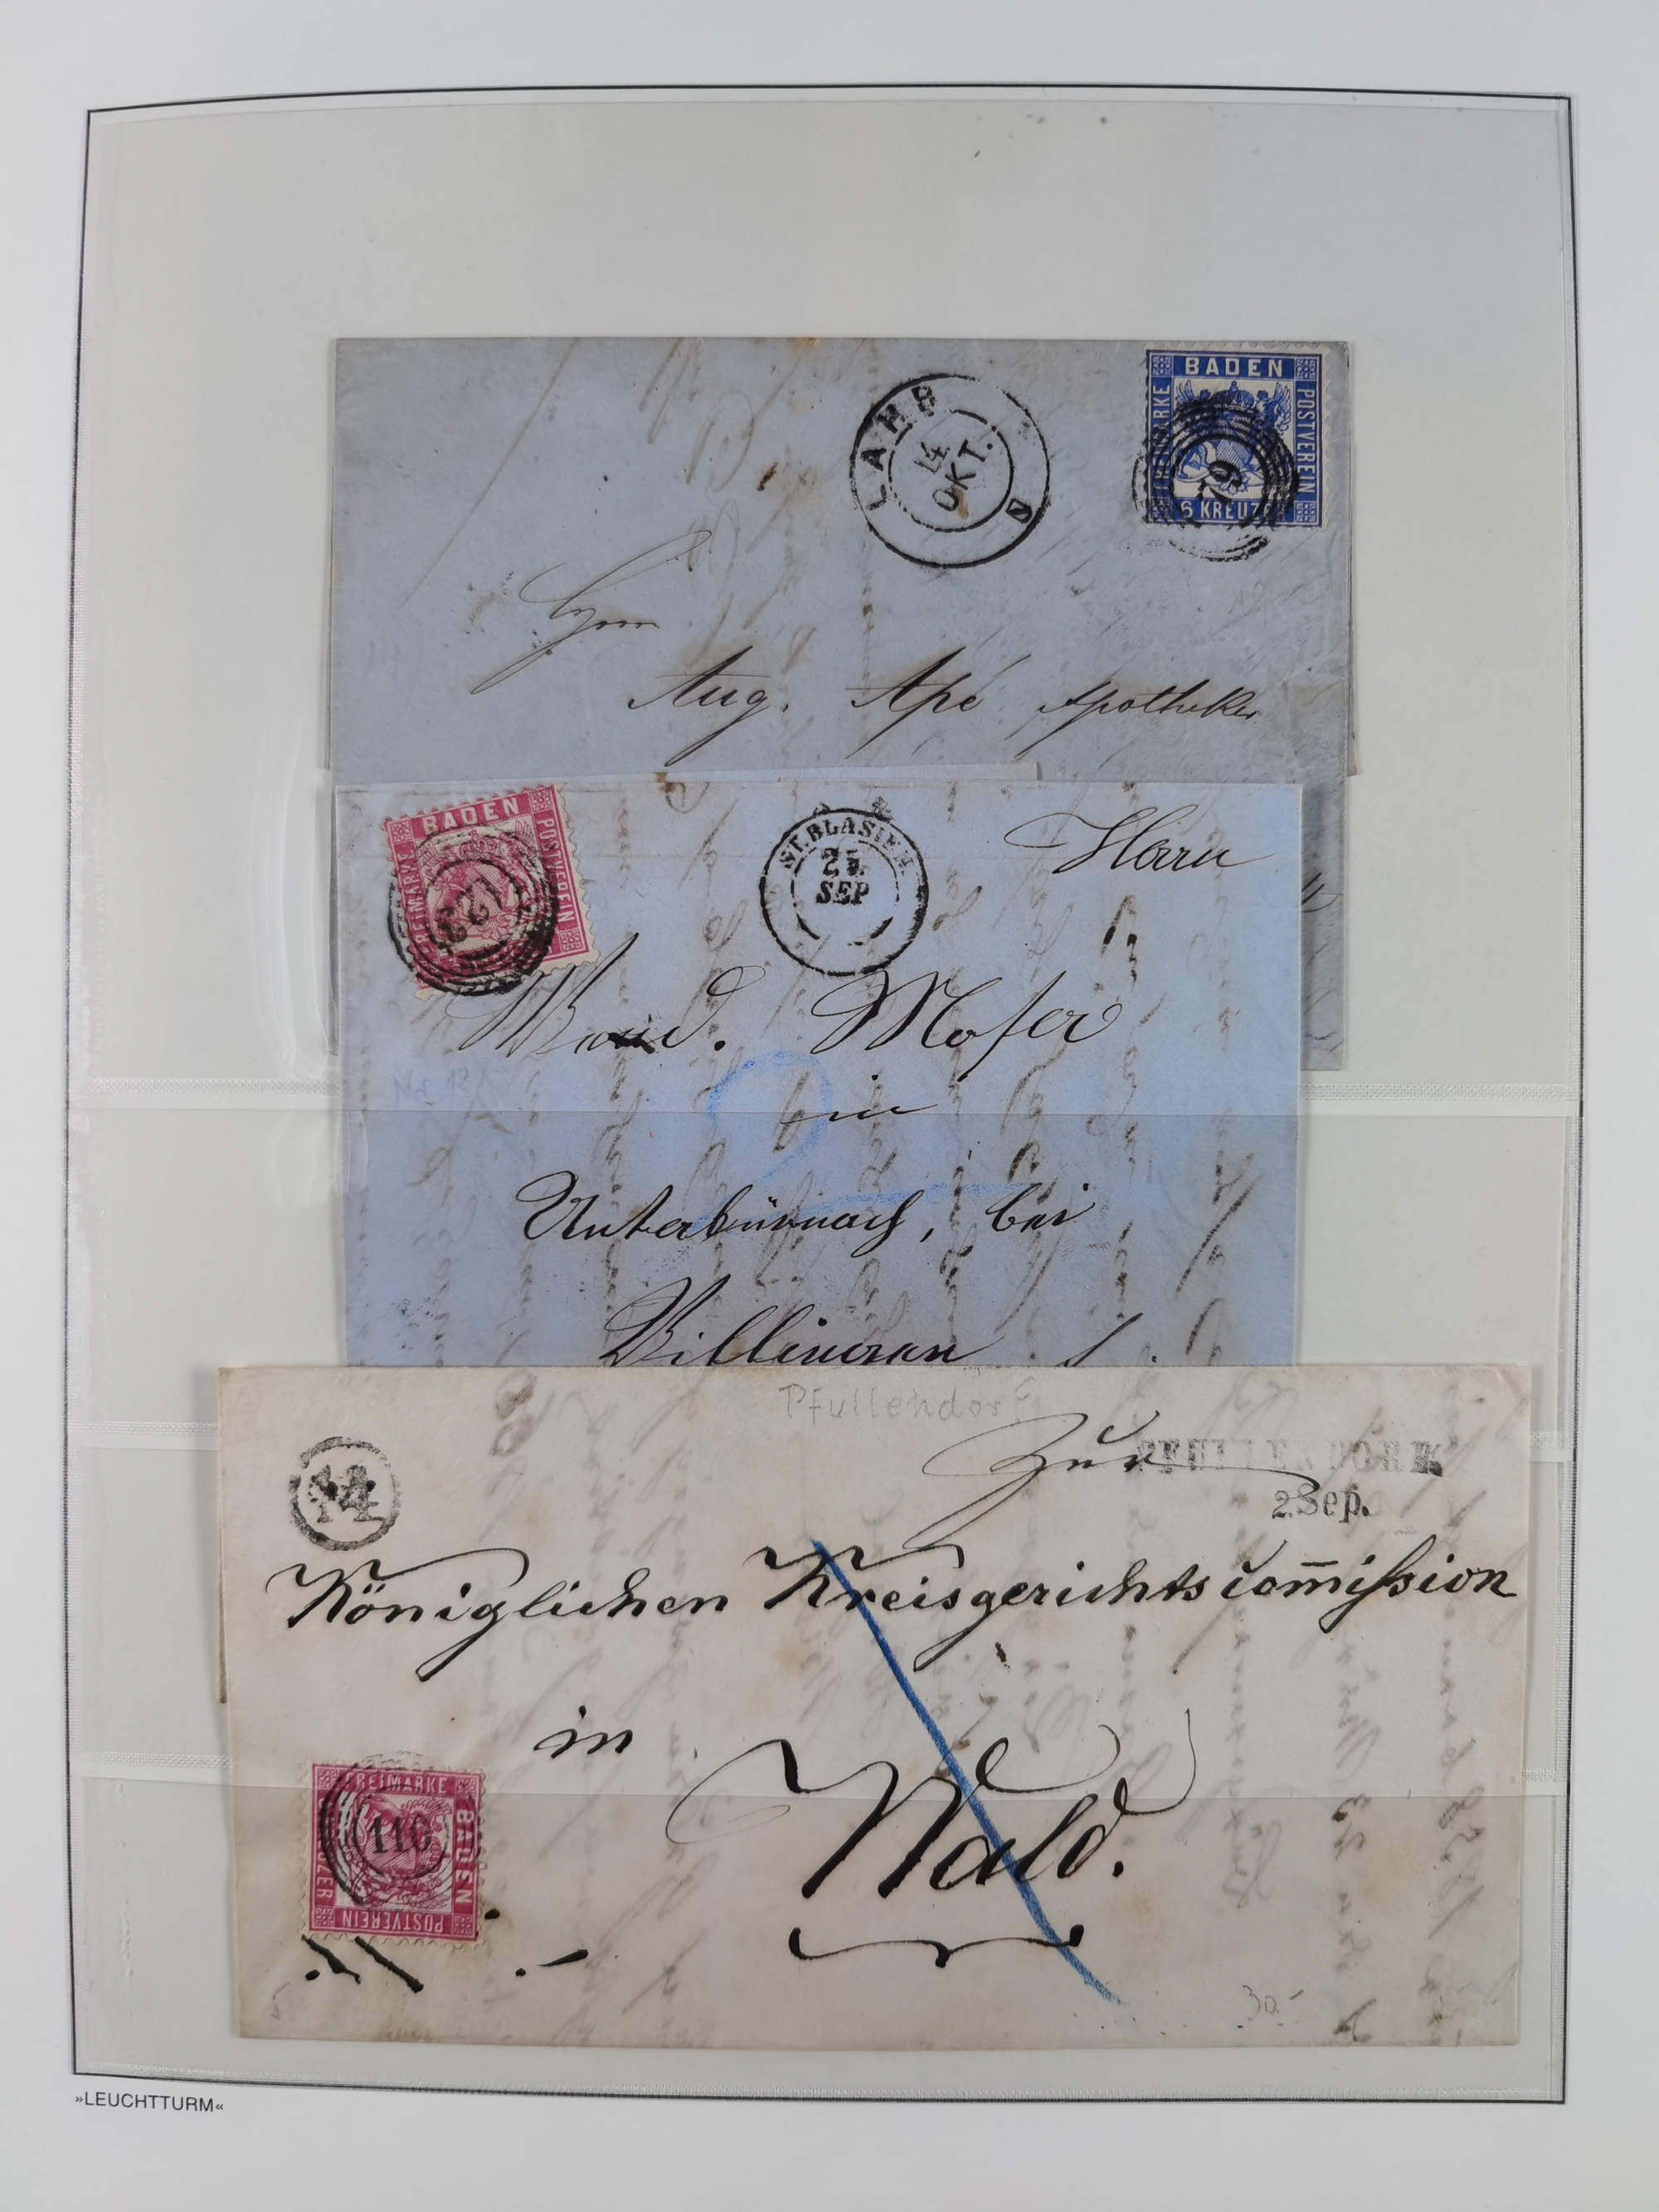 BADEN
FREIMARKE
POSTVEREIN
6 KREUZER
79
LAHR
4
OKT.
Herrn
Aug. Apé Apotheker
BADEN
FREIMARKE
POSTVEREIN
123
ST. BLASIEN
25
SEP
Herrn
Moser
in
Unterkürnach, bei
Villingen
Pfullendorf
Zur
PFULLENDORF
2.Sep.
14
Königlichen Kreisgerichtscom̄ißion
in
Wald.
FREIMARKE
BADEN
POSTVEREIN
110
30.-
»LEUCHTTURM«